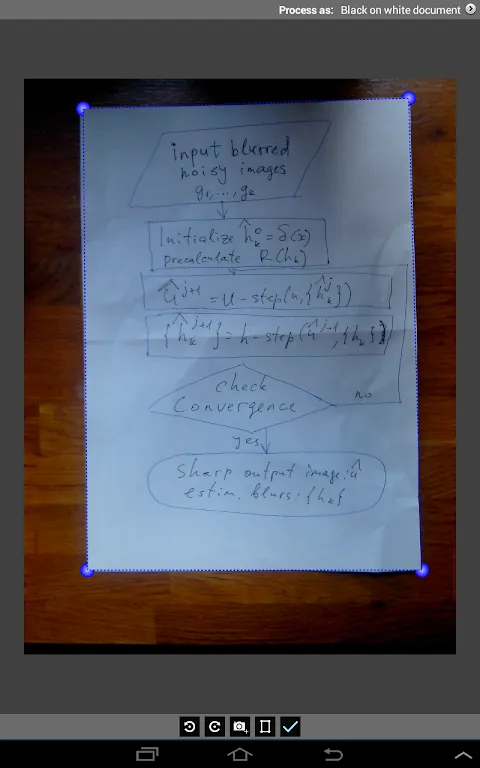 Process as: Black on white document
input blurred
noisy images
g₁,...,gₖ
Initialize ĥₖ⁰ = δ(x)
precalculate R(hₖ)
û^{j+1} = u-step(u,{ĥₖ^j})
{ĥₖ^{j+1}} = h-step(û^{j+1},{hₖ})
check
Convergence
no
yes
Sharp output image: û
estim. blurs: {hₖ}